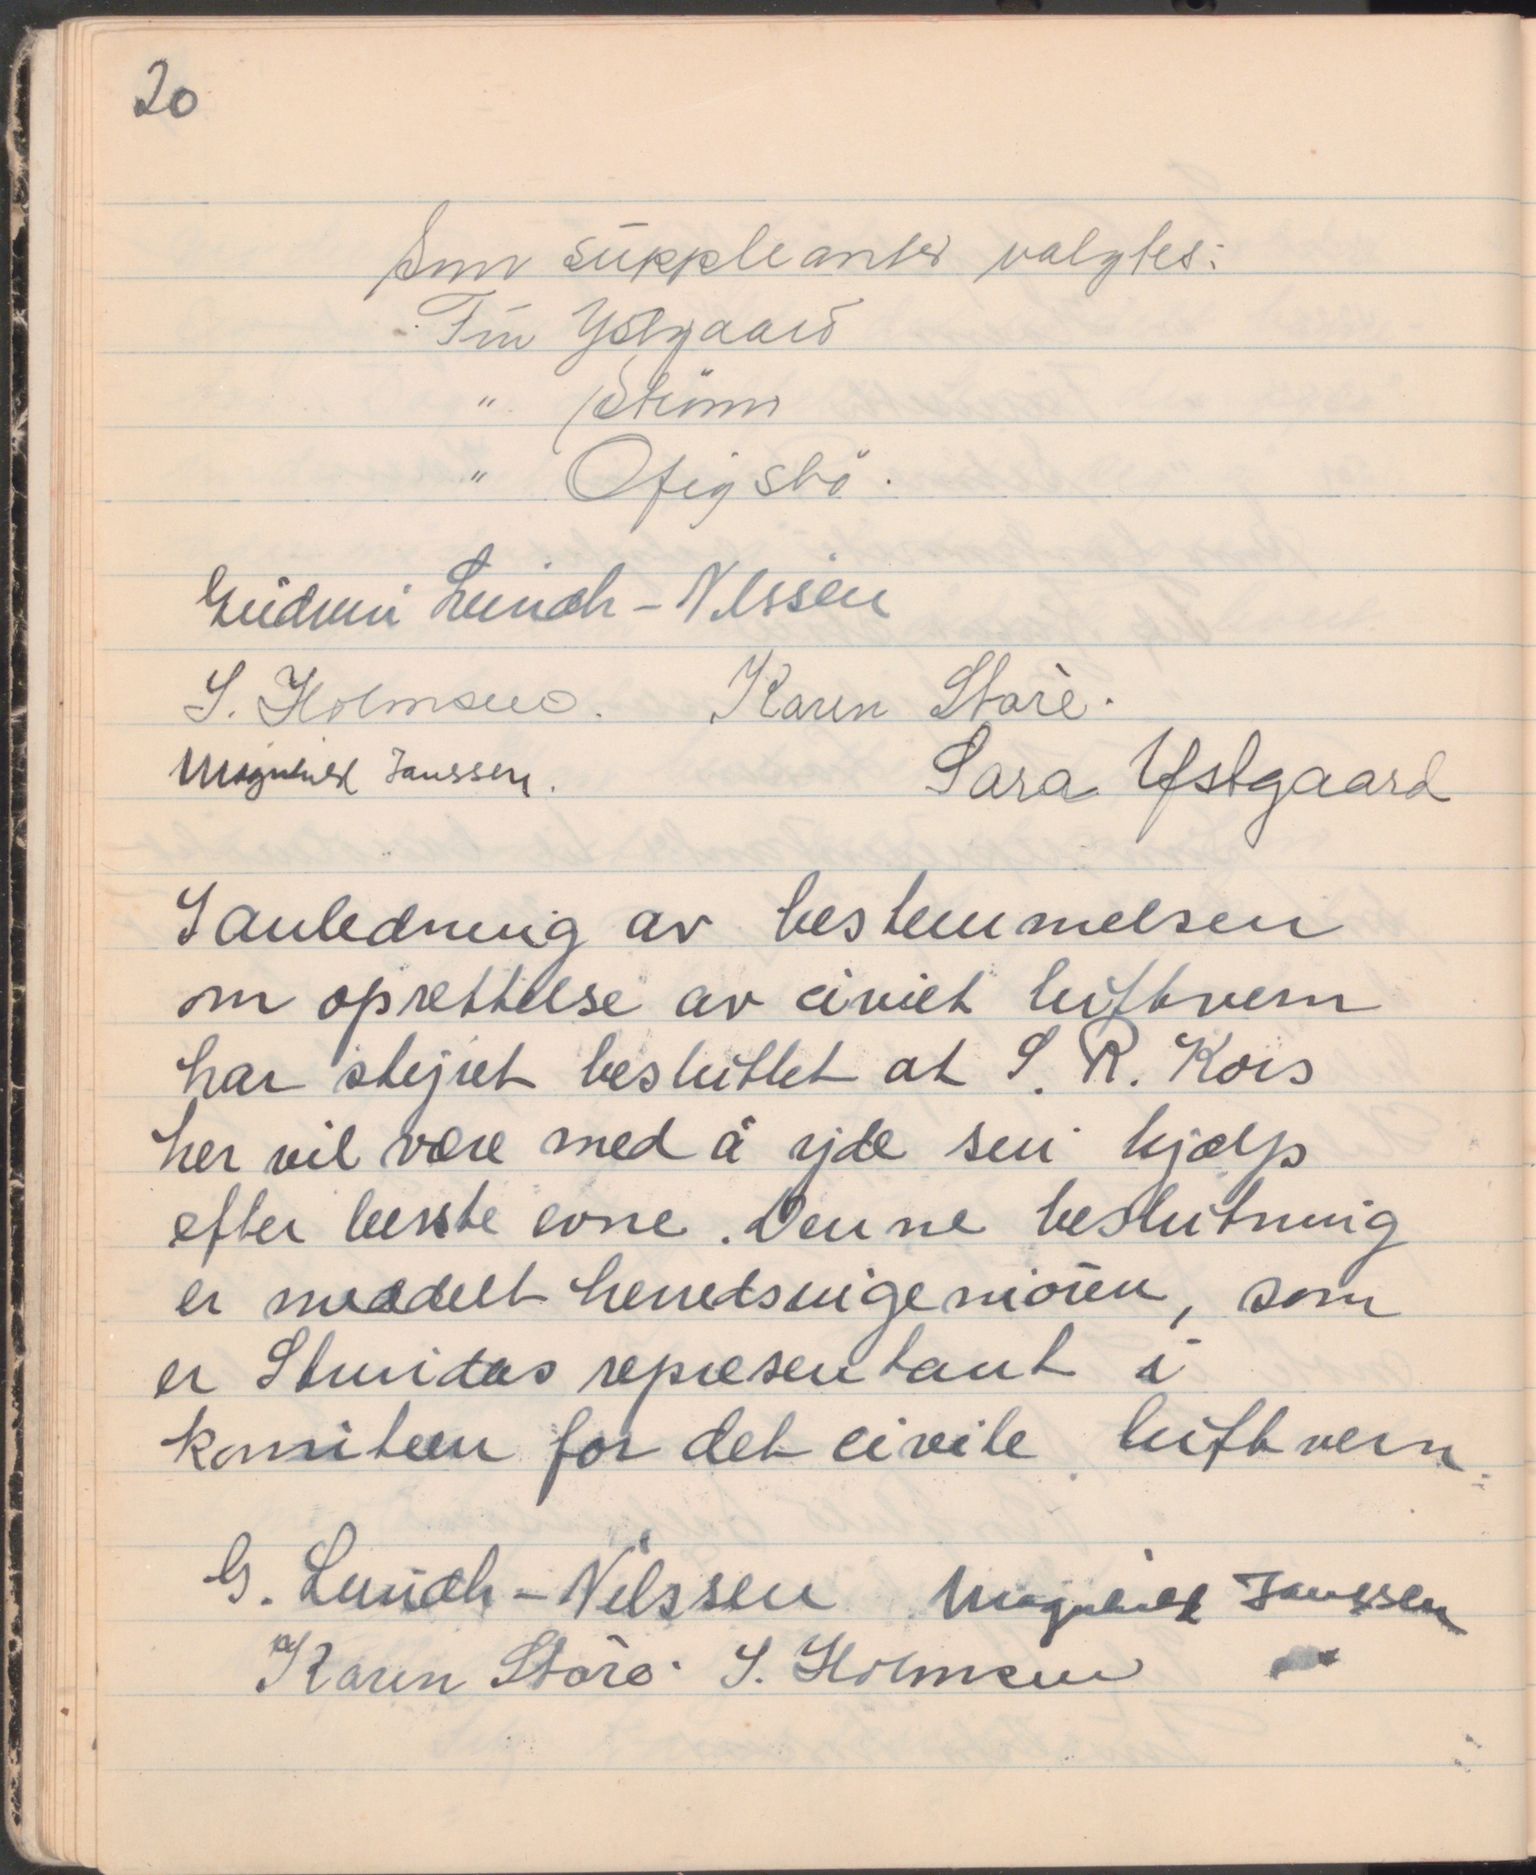 20
Som suppleanter valgtes:
Fru Ystgaard
" Strøm
" Ofigsbø.
Gudrun Lundh-Nilssen
S. Holmsen. Karen Støre.
Magnhild Janssen. Sara Ystgaard
I anledning av bestemmelsen
om oprettelse av civilt luftvern
har styret besluttet at S. R. Kors
her vil være med å yde sin hjælp
efter beste evne. Denne beslutning
er meddelt herredsingeniøren, som
er Strindas representant i
komiteen for det civile luftvern.
G. Lundh-Nilssen Magnhild Janssen
Karen Støre. S. Holmsen